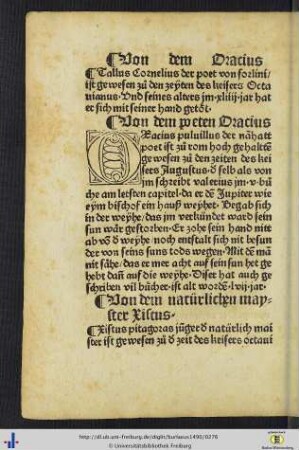 ¶Von dem Oracius
¶Tallus Cornelius der poet von forlini/
ist gewesen zů den zeyten des keisers Octa
vianus. Vnd seines alters jm. xliiij. jar hat
er sich mit seiner hand getöt.
¶Von dem poeten Oracius
Oracius puluillus der nähatt
poet ist zů rom hoch gehalten
gewesen zů den zeiten des kei
sers Augustus. d selb als von
jm schreibt valerius jm. v. bů
che am letsten capitel. da er de Jupiter wie
eym bischof ein hauß weyhet. Begab sich
in der weyhe/das jm verkündet ward sein
sun wär gestorben. Er zohe sein hand nitt
ab vō d weyhe. noch entstalt sich nit besun
der von seins suns tods wegen. Mit dē mā
nit sähe/das er mer acht auf sein sun het ge
hebt dañ auf die weyhe. Diser hat auch ge
schriben vil bücher. ist alt wordē. lvij. jar.
¶Von dem natürlichen may-
ster Xistus.
¶Xistus pitagoras jünger d natürlich mai
ster ist gewesen zů d zeit des keisers octaui
http://dl.ub.uni-freiburg.de/diglit/burlaeus1490/0276
© Universitätsbibliothek Freiburg